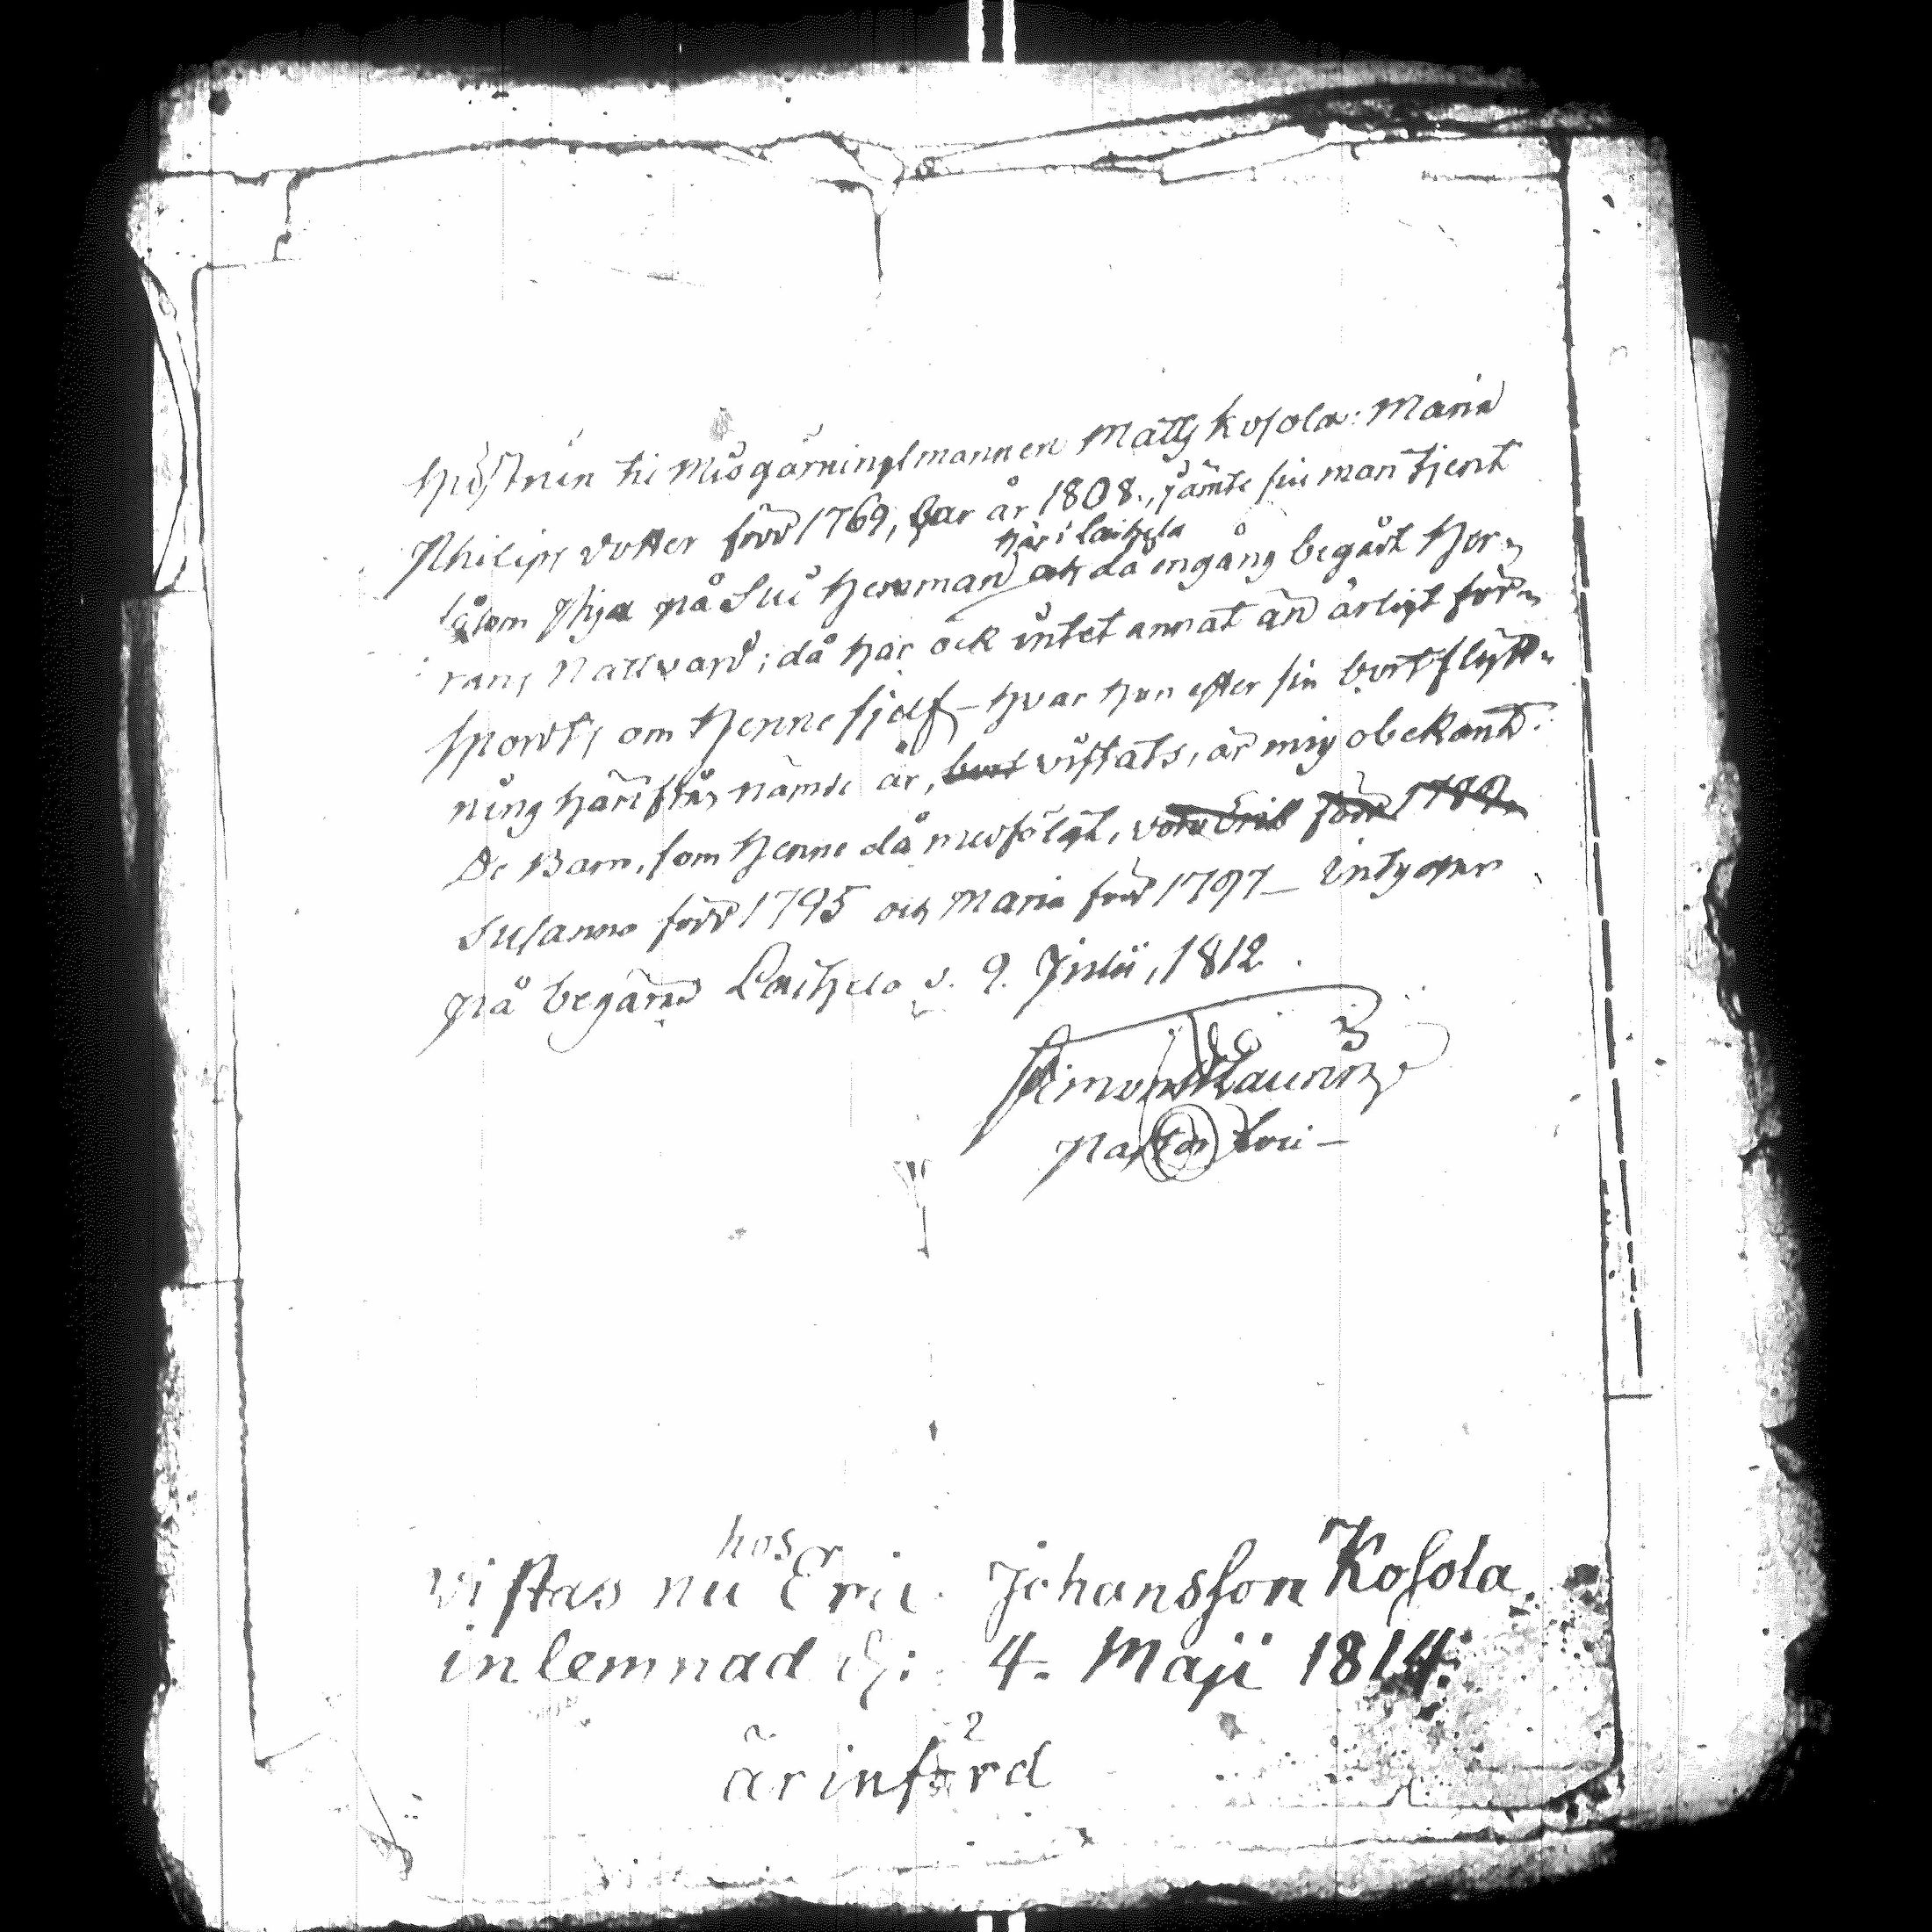 Hustrun til Misgärningsmannen Matts Kosola: Maria
Philips dotter född 1769, har år 1808., jämte sin man tjent
såsom piga på Herrman här i Laihela och då engång begärt Her-
rans Nattvard; då har ock intet annat än ärligt för-
sports om henne sjelf — hvar hon efter sin bortflytt-
ning härifrån nämde år, vistats, är mig obekant.
De Barn, som henne då medfölgt, voro Erik född 1789,
Susanna född 1795 och Maria född 1797 — intygar
på begäran Laihela d. 9. Julii, 1812.
Simon
Pastor
vistas nu hos Eric Johansson Kosola
inlemnad d: 4. Maji 1814.
är införd